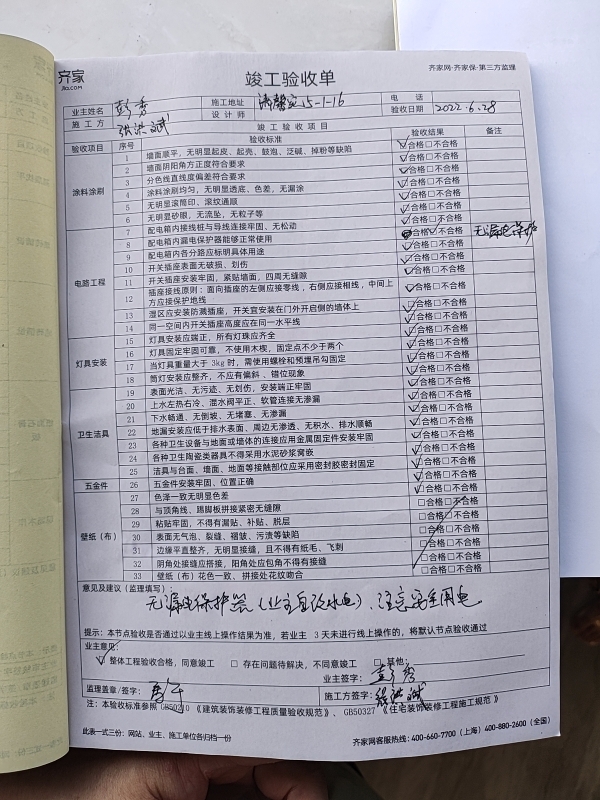 齐家
Jia.com
齐家网·齐家保·第三方监理
竣工验收单
业主姓名 彭秀 施工地址 15-1-16 电话
施工方 张洪斌 设计师 验收日期 2022.6.28
竣工验收项目
验收项目 序号 验收标准 验收结果 备注
涂料涂刷
1 墙面顺平，无明显起皮、起壳、鼓泡、泛碱、掉粉等缺陷 ☑合格□不合格
2 墙面阴阳角方正度符合要求 ☑合格□不合格
3 分色线直线度偏差符合要求 ☑合格□不合格
4 涂料涂刷均匀，无明显透底、色差，无漏涂 ☑合格□不合格
5 无明显滚筒印、滚纹通顺 ☑合格□不合格
6 无明显砂眼，无流坠，无粒子等 ☑合格□不合格
电路工程
7 配电箱内接线桩与导线连接牢固、无松动 ☑合格□不合格
8 配电箱内漏电保护器能够正常使用 合格☑不合格 无漏电保护
9 配电箱内各分路应标明具体用途 ☑合格□不合格
10 开关插座表面无破损、划伤 ☑合格□不合格
11 开关插座安装牢固，紧贴墙面，四周无缝隙 ☑合格□不合格
12 插座接线原则：面向插座的左侧应接零线，右侧应接相线，中间上方应接保护地线 ☑合格□不合格
13 湿区应安装防溅插座，开关宜安装在门外开启侧的墙体上 ☑合格□不合格
14 同一空间内开关插座高度应在同一水平线 ☑合格□不合格
灯具安装
15 灯具安装应端正，所有灯珠应齐全 ☑合格□不合格
16 灯具固定牢固可靠，不使用木楔，固定点不少于两个 ☑合格□不合格
17 当灯具重量大于 3kg 时，需使用螺栓和预埋吊勾固定 ☑合格□不合格
18 筒灯安装应整齐，不应有偏斜、错位现象 ☑合格□不合格
卫生洁具
19 表面光洁、无污迹、无划伤，安装端正牢固 ☑合格□不合格
20 上水左热右冷、混水阀平正、软管连接无渗漏 ☑合格□不合格
21 下水畅通、无倒坡、无堵塞、无渗漏 ☑合格□不合格
22 地漏安装应低于排水表面、周边无渗透、无积水、排水顺畅 ☑合格□不合格
23 各种卫生设备与地面或墙体的连接应用金属固定件安装牢固 ☑合格□不合格
24 各种卫生陶瓷类器具不得采用水泥砂浆窝嵌 ☑合格□不合格
25 洁具与台面、墙面、地面等接触部位应采用密封胶密封固定 ☑合格□不合格
五金件
26 五金件安装牢固、位置正确 ☑合格□不合格
壁纸（布）
27 色泽一致无明显色差 □合格□不合格
28 与顶角线、踢脚板拼接紧密无缝隙 □合格□不合格
29 粘贴牢固，不得有漏贴、补贴、脱层 □合格□不合格
30 表面无气泡、裂缝、褶皱、污渍等缺陷 □合格□不合格
31 边缘平直整齐，无明显接缝，且不得有纸毛、飞刺 □合格□不合格
32 阴角处接缝应搭接，阳角处应包角不得有接缝 □合格□不合格
33 壁纸（布）花色一致、拼接处花纹吻合 □合格□不合格
意见及建议（监理填写）：
无漏电保护器（业主自改水电）、注意安全用电
提示：本节点验收是否通过以业主线上操作结果为准，若业主 3 天未进行线上操作的，将默认节点验收通过
业主意见：
☑ 整体工程验收合格，同意竣工 □ 存在问题待解决，不同意竣工 □ 其他：
业主签字： 彭秀
监理盖章/签字： 施工方签字： 张洪斌
注：本验收标准参照 GB50210 《建筑装饰装修工程质量验收规范》、GB50327 《住宅装饰装修工程施工规范》
此表一式三份：网站、业主、施工单位各归档一份
齐家网客服热线：400-660-7700（上海）400-880-2600（全国）